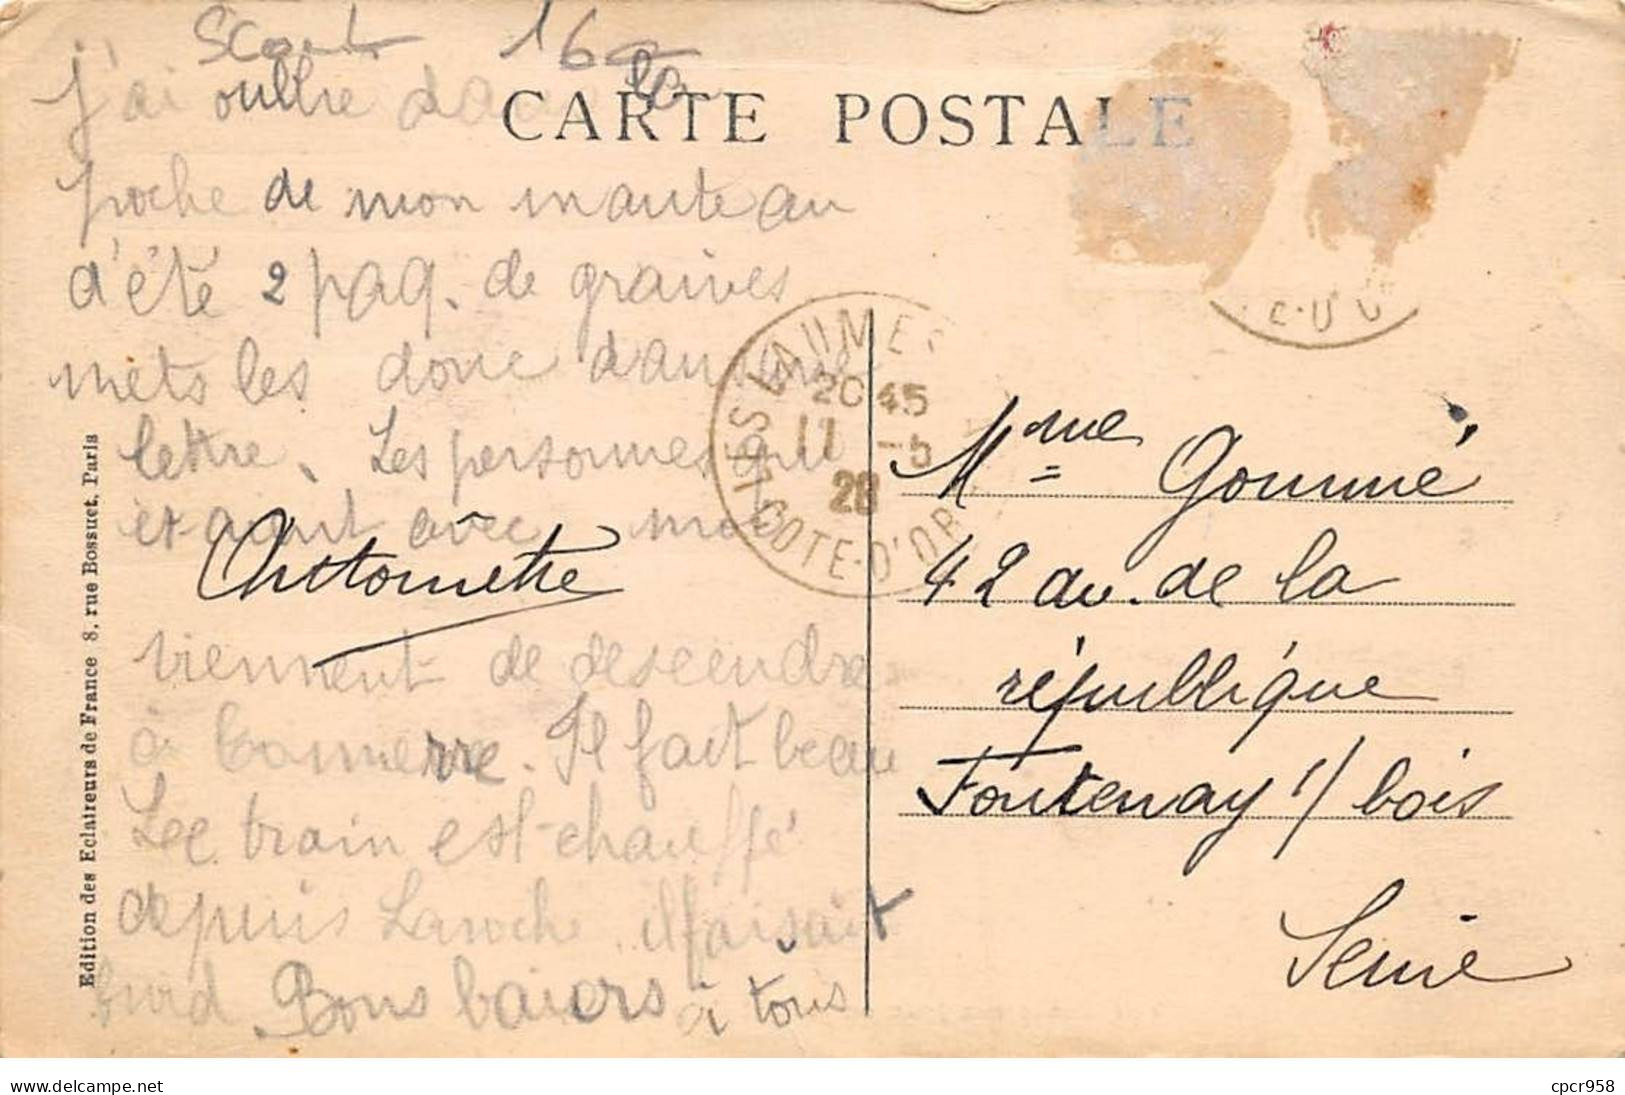 Scout 16
CARTE POSTALE
j'ai oublié dans la
poche de mon manteau
d'été 2 paq. de graines
mets les donc dans une
lettre. Les personnes qui
étaient avec moi
Antoinette
viennent de descendre
à Tonnerre. Il fait beau
Le train est chauffé
depuis Laroche. il faisait
froid Bons baisers à tous
Edition des Eclaireurs de France 8, rue Bossuet, Paris
LES LAUMES
20 45
17 -5
28
COTE-D'OR
Mme Goumié
42 av. de la
république
Fontenay s/ bois
Seine
cpcr958